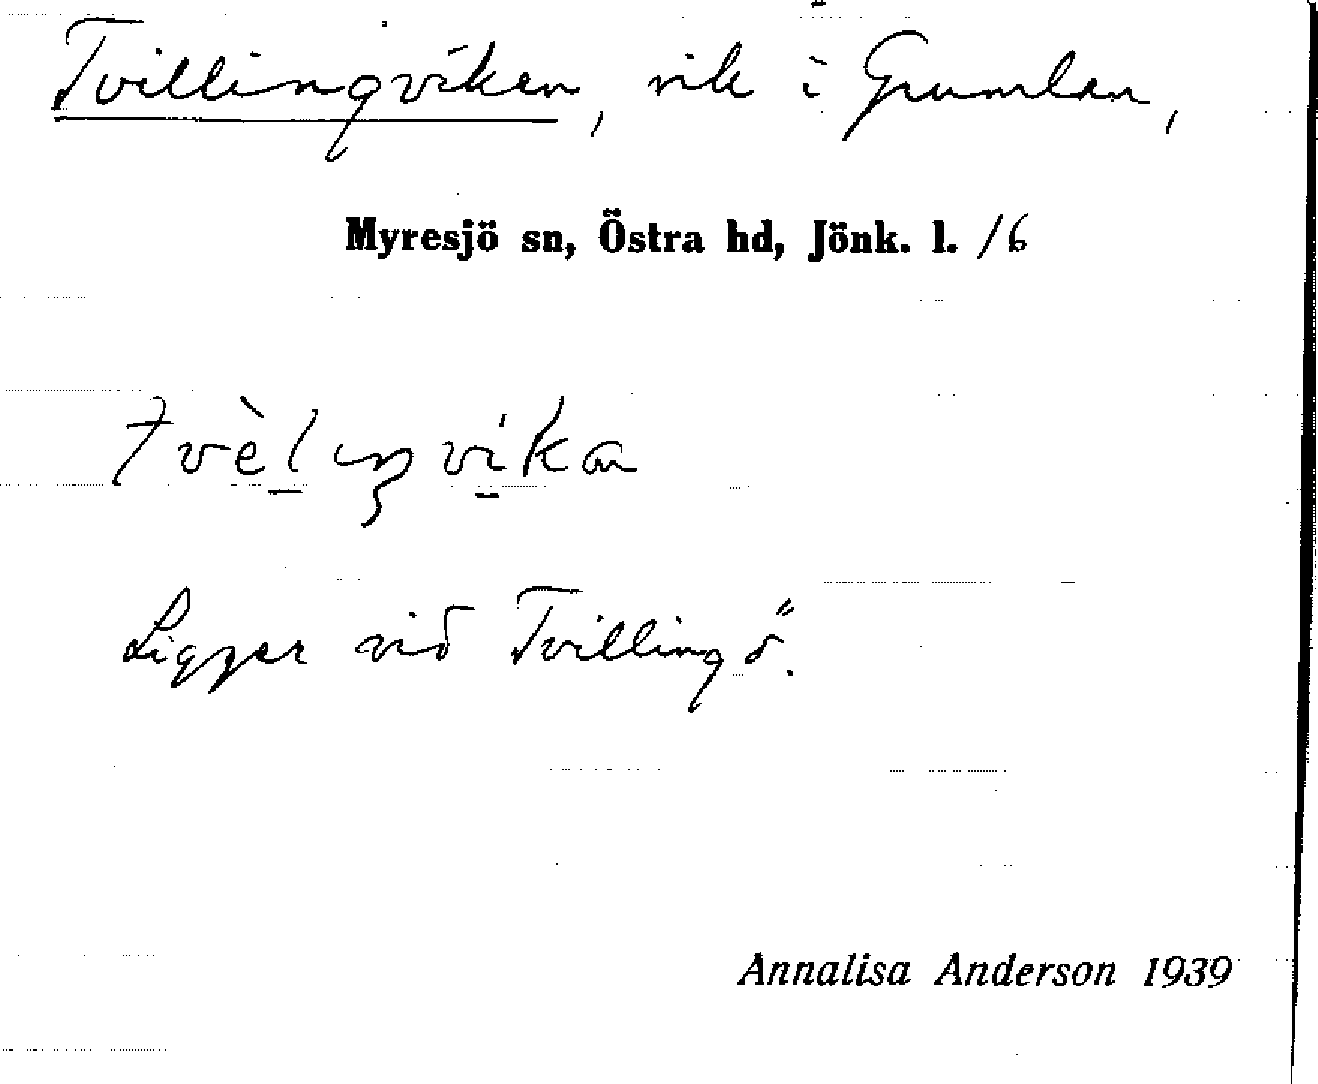 Tvillingviken, vik i Grumlan,
Myresjö sn, Östra hd, Jönk. l. /6
tvèlıŋvíka
Ligger vid Tvillingö.
Annalisa Anderson 1939